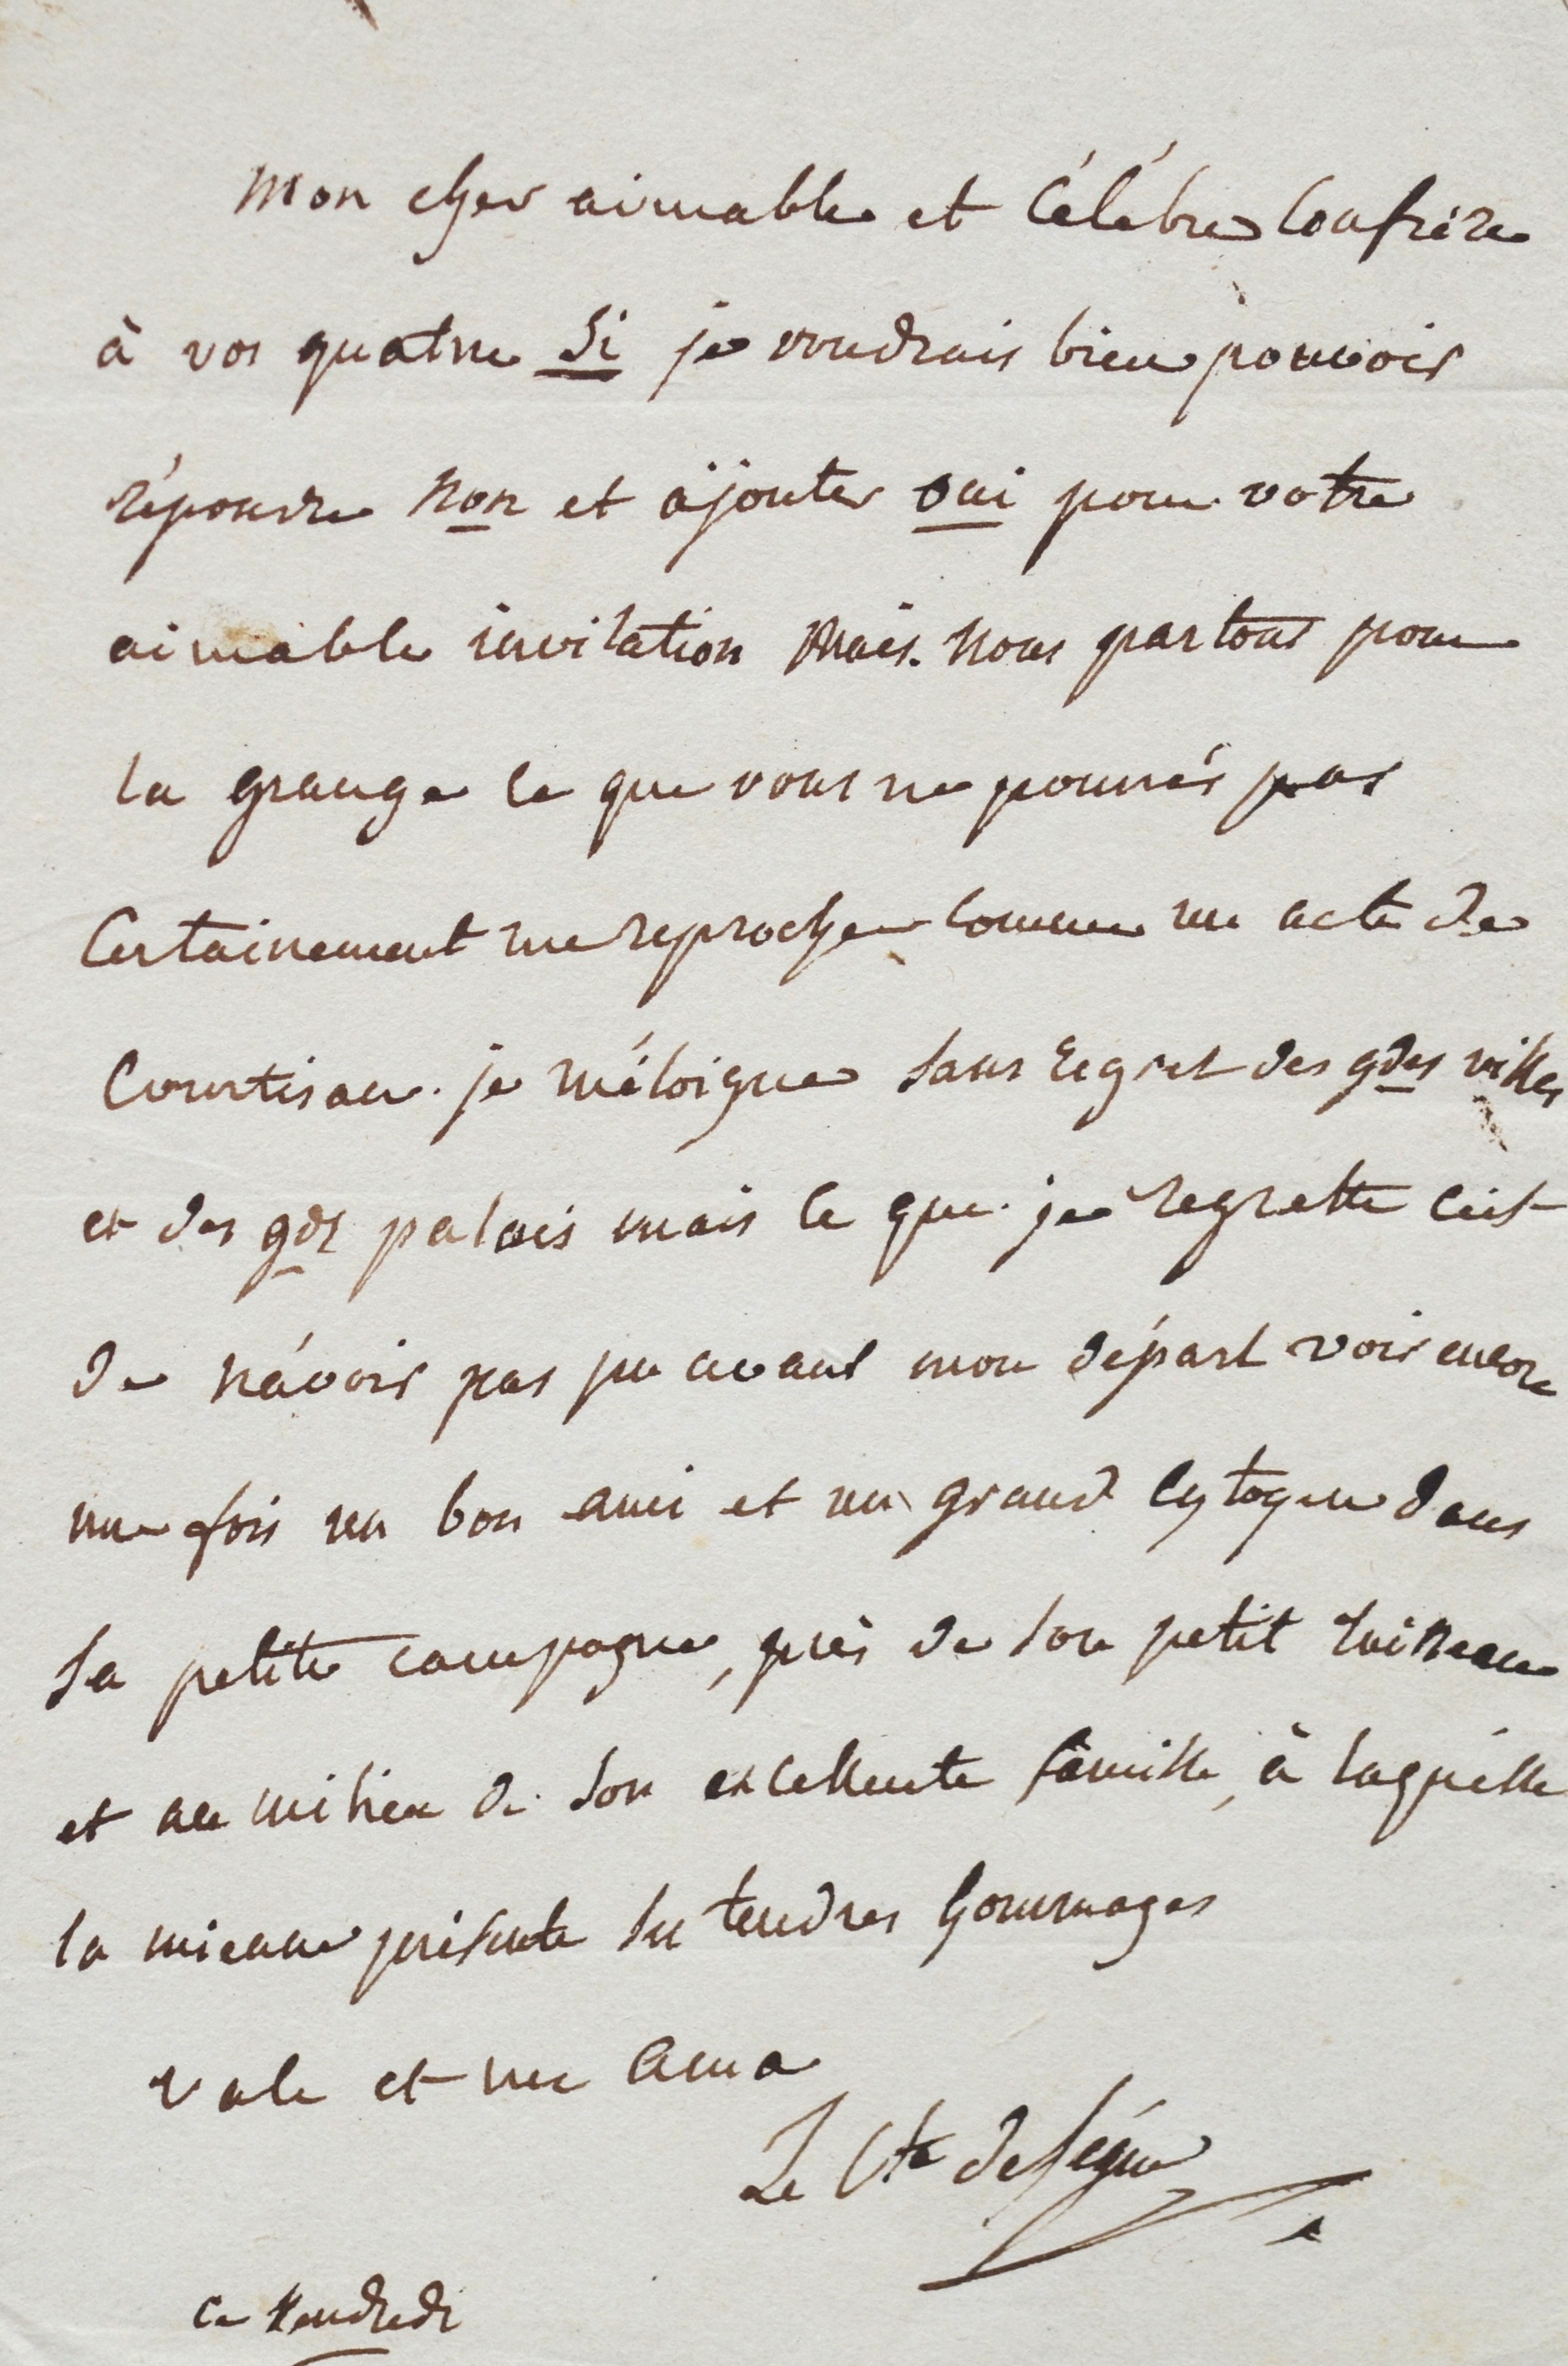 Mon cher aimable et célébre confrère
à vos quatre si je voudrais bien pouvoir
répondre non et ajouter oui pour votre
aimable invitation mais. nous partons pour
la grange ce que vous ne pourrés pas
certainement me reprocher comme un acte de
courtisan. je m'éloigne sans regret des gdes villes
et des gds palais mais ce que je regrette c'est
de n'avoir pas pu avant mon départ voir encore
une fois un bon ami et un grand cytoyen dans
sa petite campagne, près de son petit ruisseau
et au milieu de son excellente famille, à laquelle
la mienne présente ses tendres hommages
vale et me ama
Le Cte de Ségur
ce vendredi